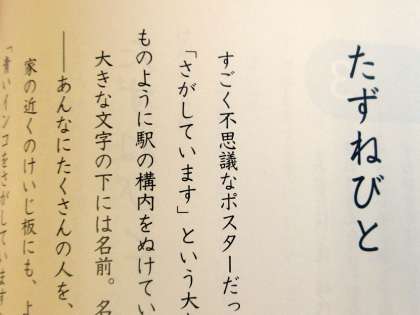 たずねびと
すごく不思議なポスターだっ
「さがしています」という大
ものように駅の構内をぬけてい
大きな文字の下には名前。名
――あんなにたくさんの人を、
家の近くのけいじ板にも、よ
「青いインコをさがしています